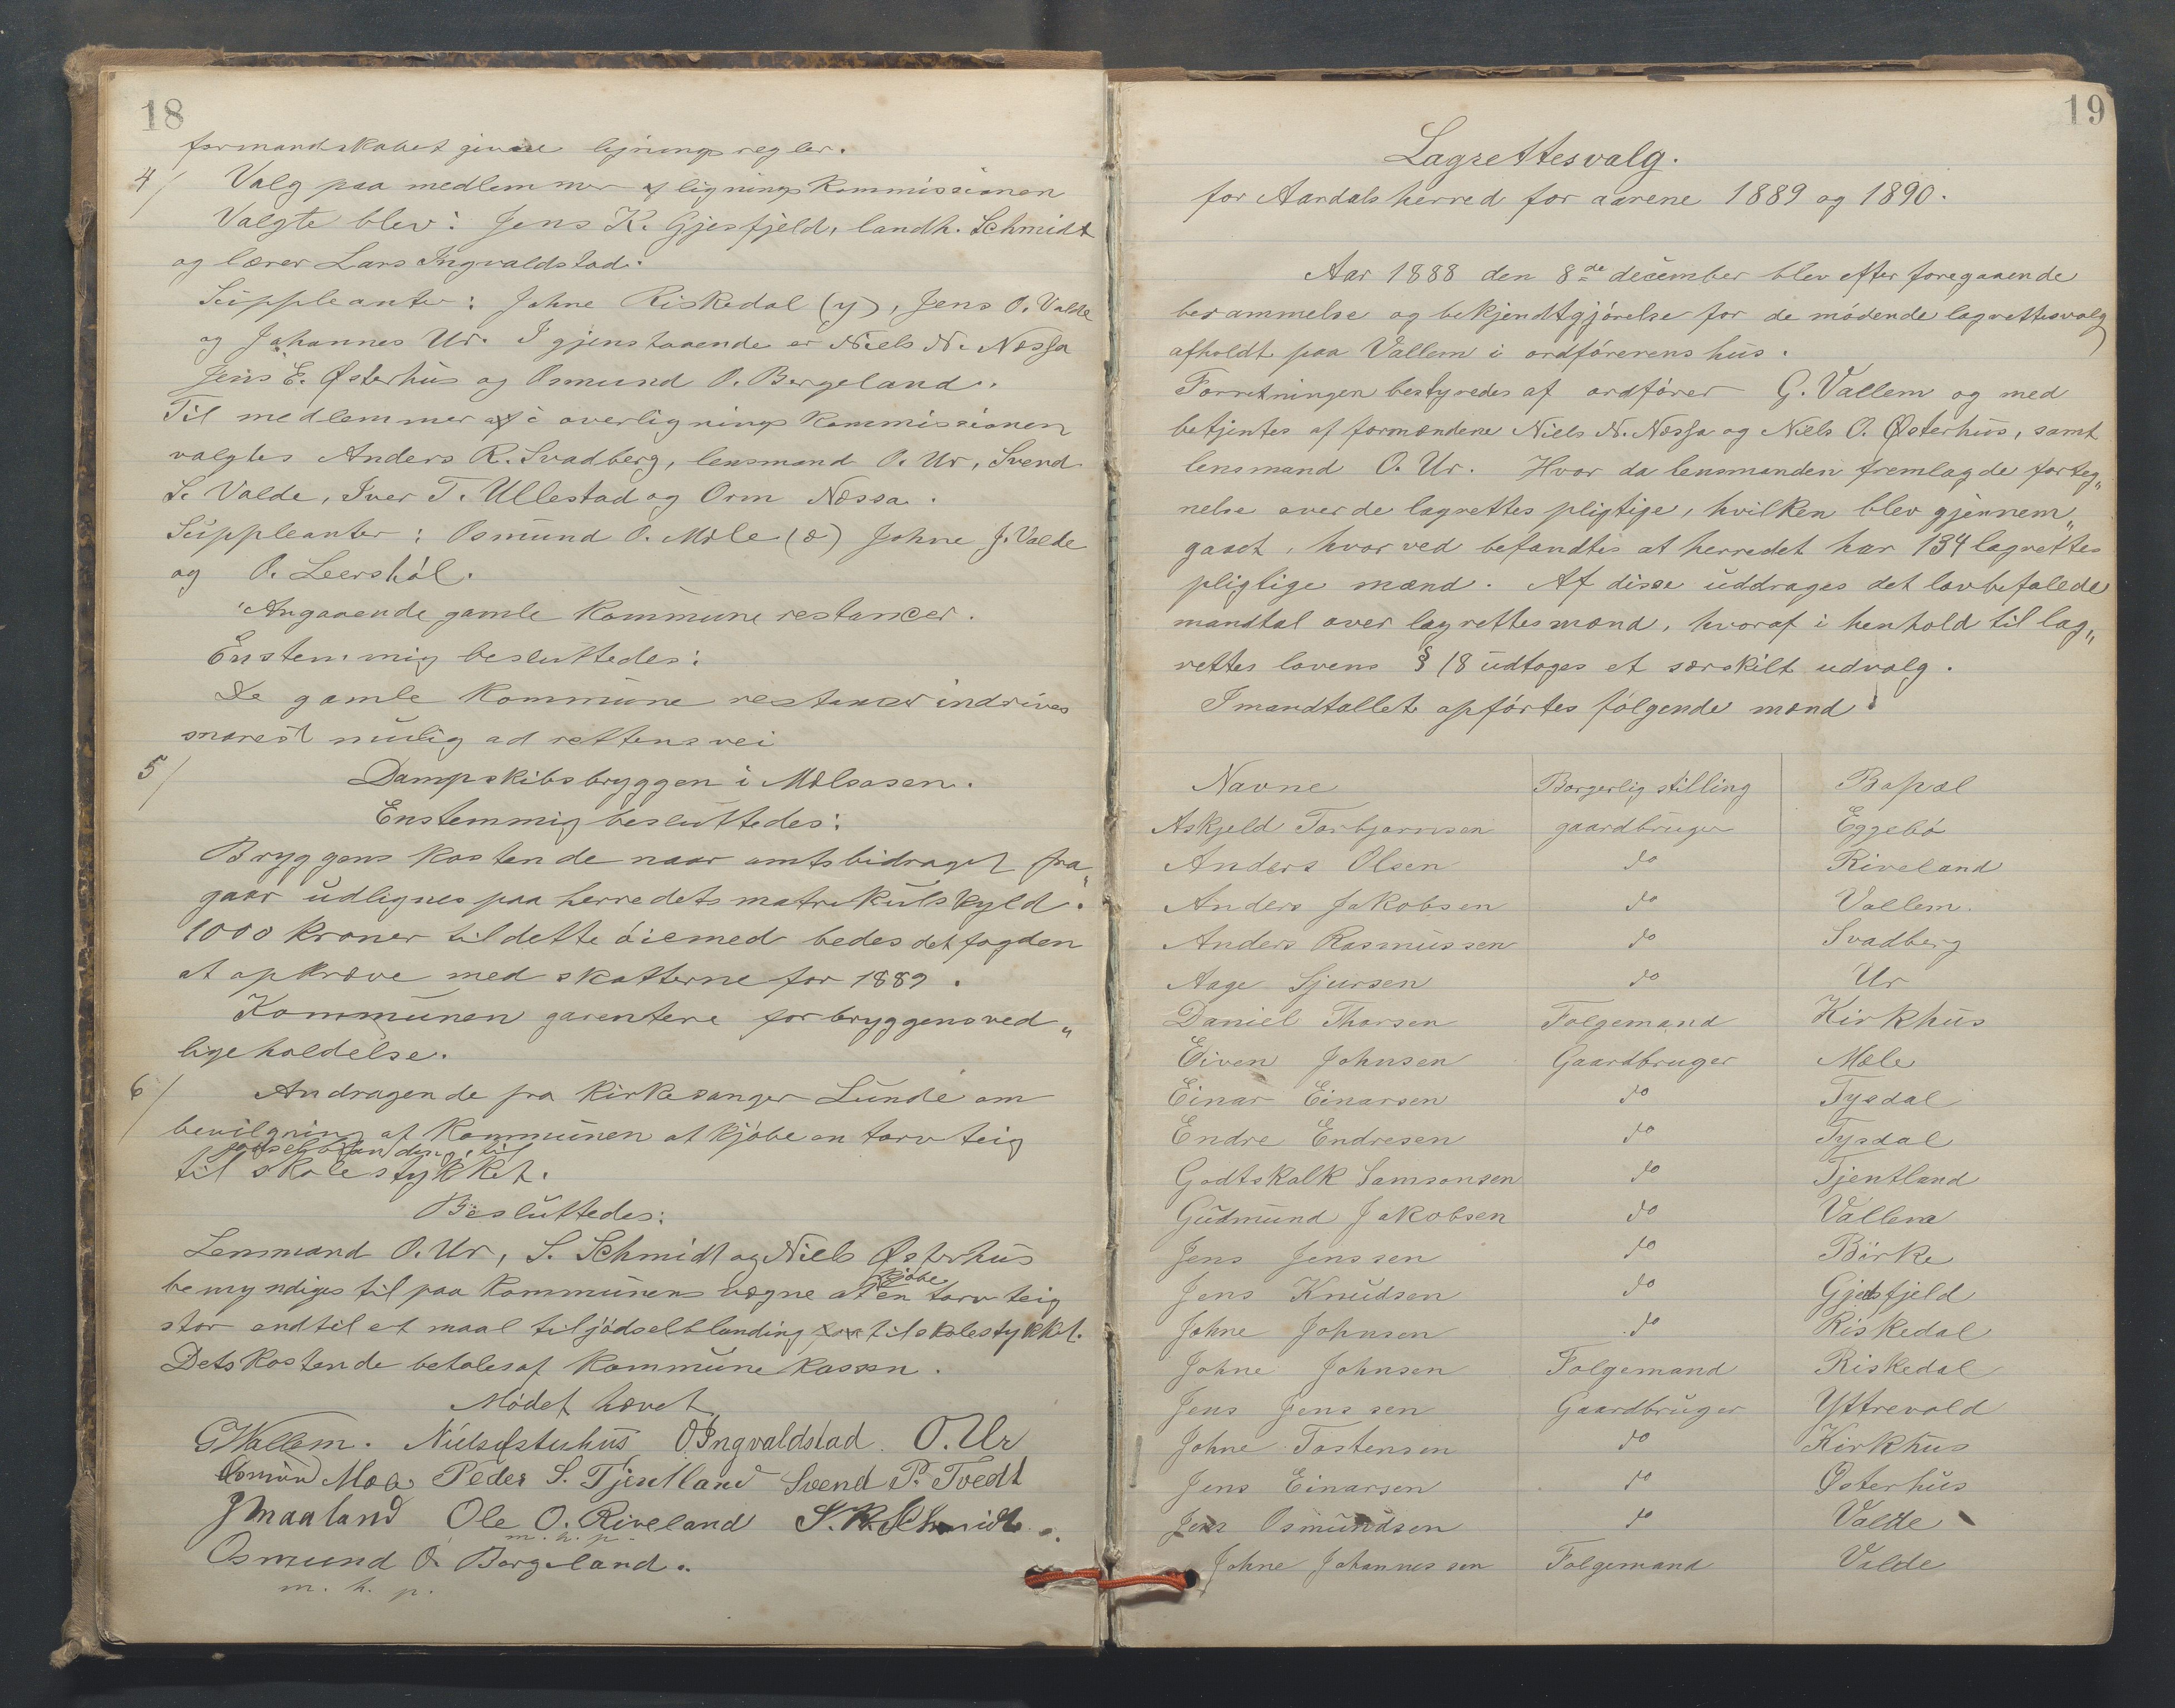 18
formandskabet givne ligningsregler.
4/ Valg paa medlemmer af ligningskommissionen
Valgte blev: Jens K. Gjesfjeld, landh. Schmidt
og lærer Lars Ingvaldstad.
Suppleanter: Johne Riskedal (y), Jens O. Valde
og Johannes Ur. I gjenstaaende er Niels N. Nessa
Jens E. Østerhus og Osmund O. Bergeland.
Til medlemmer af i overligningskommissionen
valgtes Anders R. Svadberg, lensmand O. Ur, Svend
S. Valde, Iver T. Ullestad og Orm Nessa.
Suppleanter: Osmund O. Mæle (æ) Johne J. Valde
og O. Leershól.
Angaaende gamle kommunerestancer.
Enstemmig besluttedes:
De gamle kommunerestancer indrives
snarest mulig ad rettens vei
5/ Dampskibsbryggen i Mælsosen.
Enstemmig besluttedes:
Bryggens kostende naar amtsbidraget fra„
gaar udlignes paa herredets matrikulskyld.
1000 kroner til dette óiemed bedes det fogden
at opkræve med skatterne for 1889.
Kommunen garentere for bryggens ved„
ligeholdelse.
6/ Andragende fra kirkesanger Lunde om
bevilgning af kommunen at kjóbe en torvteig
jódselblanding til
til skolestykket.
Besluttedes:
Lensmand O. Ur, S. Schmidt og Niels Østerhus
kjóbe
bemyndiges til paa kommunens vegne at en torvteig
stor indtil et maal til jódselblanding til skolestykket.
Dets kostende betales af kommunekassen.
Módet hævet
GVallem. Niels Østerhus O Ingvaldstad. O. Ur
Osmun Moe Peder S. Tjentland Svend P. Tvedt
J Maaland Ole O. Riveland S. R. Schmidt.
m. h. p.
Osmund O Bergeland.
m. h. p.
19
Lagrettesvalg.
for Aardals herred for aarene 1889 og 1890.
Aar 1888 den 8de december blev efter foregaaende
berammelse og bekjendtgjórelse for de módende lagrettesvalg
afholdt paa Vallem i ordfórerens hus.
Forretningen bestyredes af ordfórer G. Vallem og med
betjentes af formændene Niels N. Nessa og Niels O. Østerhus, samt
lensmand O. Ur. Hvor da lensmanden fremlagde forteg„
nelse over de lagrettespligtige, hvilken blev gjennem„
gaaet, hvorved befandtes at herredet har 134 lagrettes
pligtige mænd. Af disse uddrages det lovbefalede
mandtal over lagrettesmænd, hvoraf i henhold til lag„
rettes lovens § 18 udtoges et særskilt udvalg.
I mandtallet opfórtes fólgende mænd:
Navne Borgerlig stilling Bopæl
Askjeld Torbjørnsen gaardbruger Eggebó
Anders Olsen do Riveland
Anders Jakobsen do Vallem.
Anders Rasmussen do Svadberg
Aage Sjursen do Ur
Daniel Thorsen Folgemand Kirkhus
Eiven Johnsen Gaardbruger Mæle
Einar Einarsen do Tysdal
Endre Endresen do Tysdal
Godtskalk Samsonsen do Tjentland
Gudmund Jakobsen do Vallem
Jens Jenssen do Birke
Jens Knudsen do Gjesfjeld
Johne Johnsen do Riskedal
Johne Johnsen Folgemand Riskedal
Jens Jenssen Gaardbruger Yttrevold
Johne Tostensen do Kirkhus
Jens Einarsen do Østerhus
Jens Osmundsen do Valde
Johne Johannessen Folgemand Valde